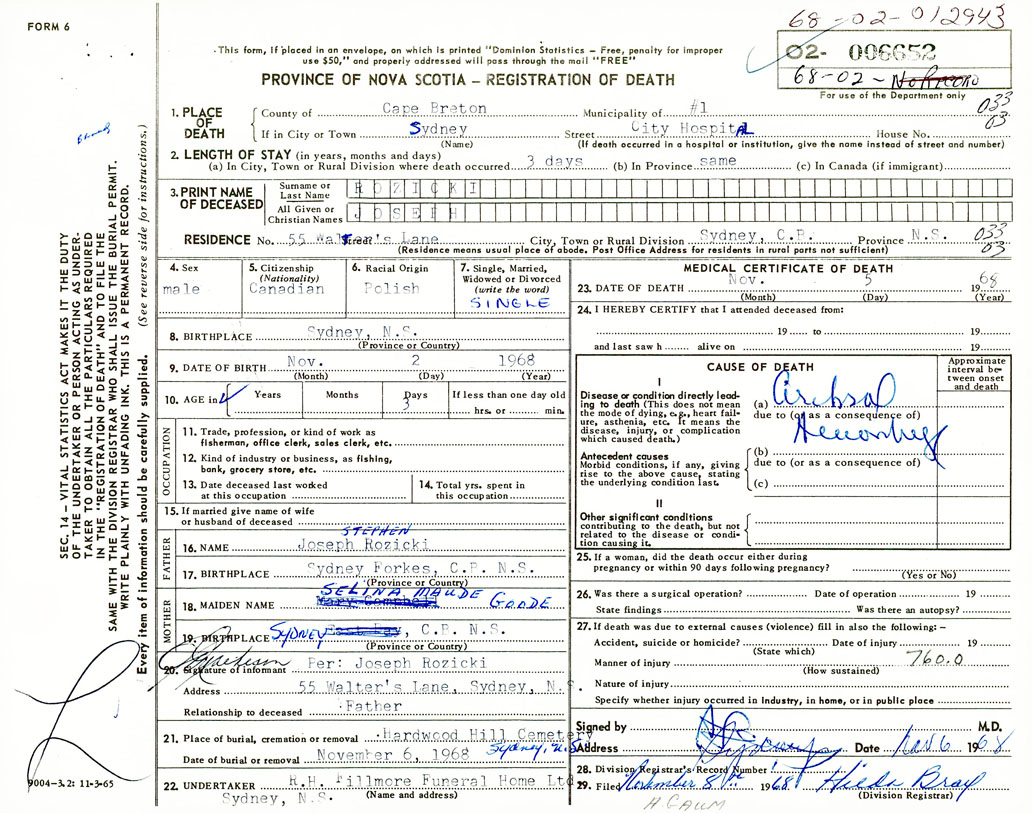 FORM 6
68-02-012943
·This form, if placed in an envelope, on which is printed "Dominion Statistics – Free, penalty for improper
use $50," and properly addressed will pass through the mail "FREE"
02- 006652
68-02-
PROVINCE OF NOVA SCOTIA – REGISTRATION OF DEATH
For use of the Department only
033
03
1. PLACE OF DEATH
County of Cape Breton Municipality of #1
If in City or Town Sydney Street City Hospital House No.
(Name) (If death occurred in a hospital or institution, give the name instead of street and number)
2. LENGTH OF STAY (in years, months and days)
(a) In City, Town or Rural Division where death occurred 3 days (b) In Province same (c) In Canada (if immigrant)
3. PRINT NAME OF DECEASED
Surname or Last Name ROZICKI
All Given or Christian Names JOSEPH
RESIDENCE No. 55 Walter's Lane City, Town or Rural Division Sydney, C.B. Province N.S.
033
03
(Residence means usual place of abode. Post Office Address for residents in rural parts not sufficient)
4. Sex
male
5. Citizenship
(Nationality)
Canadian
6. Racial Origin
Polish
7. Single, Married,
Widowed or Divorced
(write the word)
SINGLE
8. BIRTHPLACE Sydney, N.S.
(Province or Country)
9. DATE OF BIRTH Nov. 2 1968
(Month) (Day) (Year)
10. AGE in Years Months Days If less than one day old
3 hrs. or min.
OCCUPATION
11. Trade, profession, or kind of work as
fisherman, office clerk, sales clerk, etc.
12. Kind of industry or business, as fishing,
bank, grocery store, etc.
13. Date deceased last worked
at this occupation
14. Total yrs. spent in
this occupation
15. If married give name of wife
or husband of deceased
FATHER
STEPHEN
16. NAME Joseph Rozicki
17. BIRTHPLACE Sydney Forkes, C.B. N.S.
(Province or Country)
MOTHER
SELINA MAUDE
18. MAIDEN NAME Mary Campbell GOODE
19. BIRTHPLACE SYDNEY East Bay, C.B. N.S.
(Province or Country)
20. Signature of informant Per: Joseph Rozicki
Address 55 Walter's Lane, Sydney, N.S.
Relationship to deceased Father
21. Place of burial, cremation or removal Hardwood Hill Cemetery
Sydney, N.S.
Date of burial or removal November 6, 1968
22. UNDERTAKER R.H. Fillmore Funeral Home Ltd
Sydney, N.S. (Name and address)
MEDICAL CERTIFICATE OF DEATH
23. DATE OF DEATH Nov. 5 1968
(Month) (Day) (Year)
24. I HEREBY CERTIFY that I attended deceased from:
19 to 19
and last saw h alive on 19
CAUSE OF DEATH
Approximate interval between onset and death
I
Disease or condition directly leading to death (This does not mean the mode of dying, e.g., heart failure, asthenia, etc. It means the disease, injury, or complication which caused death.)
(a) Cerebral
due to (or as a consequence of)
Hemorrhage
Antecedent causes
Morbid conditions, if any, giving rise to the above cause, stating the underlying condition last.
(b)
due to (or as a consequence of)
(c)
II
Other significant conditions
contributing to the death, but not related to the disease or condition causing it.
25. If a woman, did the death occur either during
pregnancy or within 90 days following pregnancy?
(Yes or No)
26. Was there a surgical operation? Date of operation 19
State findings Was there an autopsy?
27. If death was due to external causes (violence) fill in also the following:–
Accident, suicide or homicide? Date of injury 19
(State which)
760.0
Manner of injury
(How sustained)
Nature of injury
Specify whether injury occurred in Industry, in home, or in public place
Signed by M.D.
Address Date Nov 6 1968
28. Division Registrar's Record Number
29. Filed November 8th 1968 Hilda Bray
(Division Registrar)
H. GAUM
SEC. 14 – VITAL STATISTICS ACT MAKES IT THE DUTY
OF THE UNDERTAKER OR PERSON ACTING AS UNDER-
TAKER TO OBTAIN ALL THE PARTICULARS REQUIRED
IN THE "REGISTRATION OF DEATH" AND TO FILE THE
SAME WITH THE DIVISION REGISTRAR WHO SHALL ISSUE THE BURIAL PERMIT.
WRITE PLAINLY WITH UNFADING INK. THIS IS A PERMANENT RECORD.
Every item of information should be carefully supplied. (See reverse side for instructions.)
9004-3.2: 11-3-65